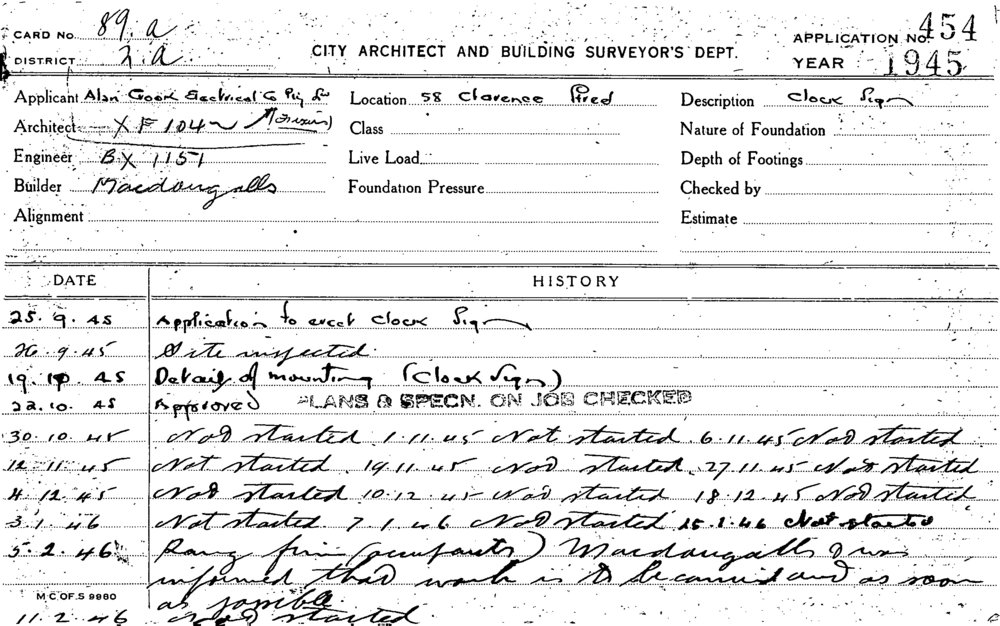 CARD No. 89.a
DISTRICT 2.a
CITY ARCHITECT AND BUILDING SURVEYOR'S DEPT.
APPLICATION No. 454
YEAR 1945
Applicant Alan Crook Electrical Co Pty Ltd Location 58 Clarence Street Description Clock Sign
Architect XF 1042 Class Nature of Foundation
Engineer BX 1151 Live Load Depth of Footings
Builder Macdougalls Foundation Pressure Checked by
Alignment Estimate
DATE HISTORY
25.9.45 Application to erect Clock Sign
26.9.45 Site inspected
19.10.45 Details of mounting (Clock Sign)
22.10.45 Approved PLANS & SPECN. ON JOB CHECKED
30.10.45 Not started 1.11.45 Not started 6.11.45 Not started
12.11.45 Not started 19.11.45 Not started 27.11.45 Not started
4.12.45 Not started 10.12.45 Not started 18.12.45 Not started
3.1.46 Not started 7.1.46 Not started 15.1.46 Not started
5.2.46 Rang firm (occupants) Macdougalls & was
informed that work is to be carried out as soon
as possible
M C OF.S 9980
11.2.46 Not started